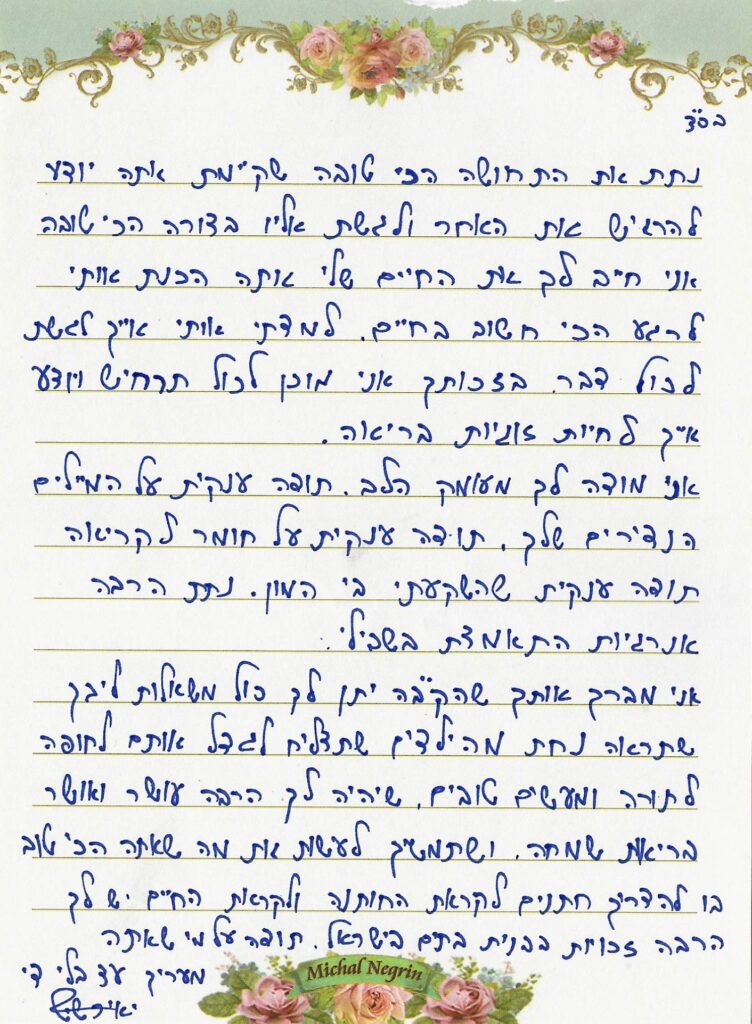 בס"ד
נתת את התחושה הכי טובה שקיימת אתה יודע
להרגיש את האחר ולגשת אליו בצורה הכי טובה
אני חייב לך את החיים שלי אותה הכנת אותי
לרגע הכי חשוב בחיים. למדתי אותי איך לגשת
לכול דבר. בזכותך אני מוכן לכול תרחיש ויודע
איך לחיות זוגיות בריאה.
אני מודה לך מעומק הלב. תודה ענקית על המילים
הנדירים שלך. תודה ענקית על חומר לקריאה
תודה ענקית שהשקעתי בי המון. נתת הרבה
אנרגיות התאמצת בשבילי.
אני מברך אותך שהקב"ה יתן לך כול משאלות ליבך
שתראה נחת מהילדים שתצליח לגדל אותם לחופה
לתורה ומעשים טובים. שיהיה לך הרבה עושר ואושר
בריאות שמחה. ושתמשיך לעשות את מה שאתה הכי טוב
בו להדריך חתנים לקראת החותנה ולקראת החיים יש לך
הרבה זכויות בבנית בתים בישראל. תודה על מי שאתה
מעריך עד בלי די
Michal Negrin